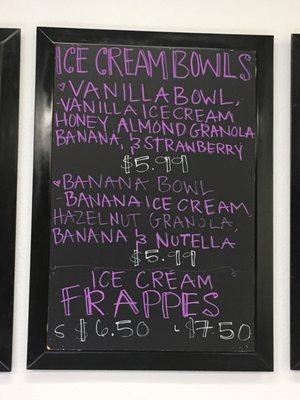 ICE CREAM BOWLS
♥ VANILLA BOWL,
- VANILLA ICE CREAM
HONEY ALMOND GRANOLA
BANANA, & STRAWBERRY
$5.99
♥ BANANA BOWL
- BANANA ICE CREAM,
HAZELNUT GRANOLA,
BANANA & NUTELLA
$5.99
ICE CREAM
FRAPPES
S $6.50 L $7.50